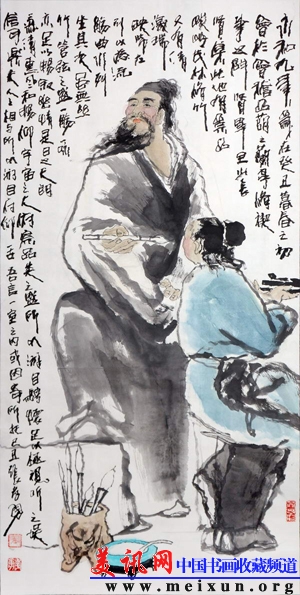 永和九年歲在癸丑暮春之初
會於會稽山陰之蘭亭脩禊
事也群賢畢至少長
咸集此地有崇山
峻嶺茂林脩竹
又有清流
激湍
映帶左右
引以為流
觴曲水列
坐其次雖無絲
竹管弦之盛一觴一詠
亦足以暢敘幽情是日也天朗
氣清惠風和暢仰觀宇宙之大俯察品類之盛所以遊目騁懷足以極視聽之娛
信可樂也夫人之相與俯仰一世 悟言一室之內或因寄所託己丑
美讯网 中国书画收藏频道
www.meixun.org